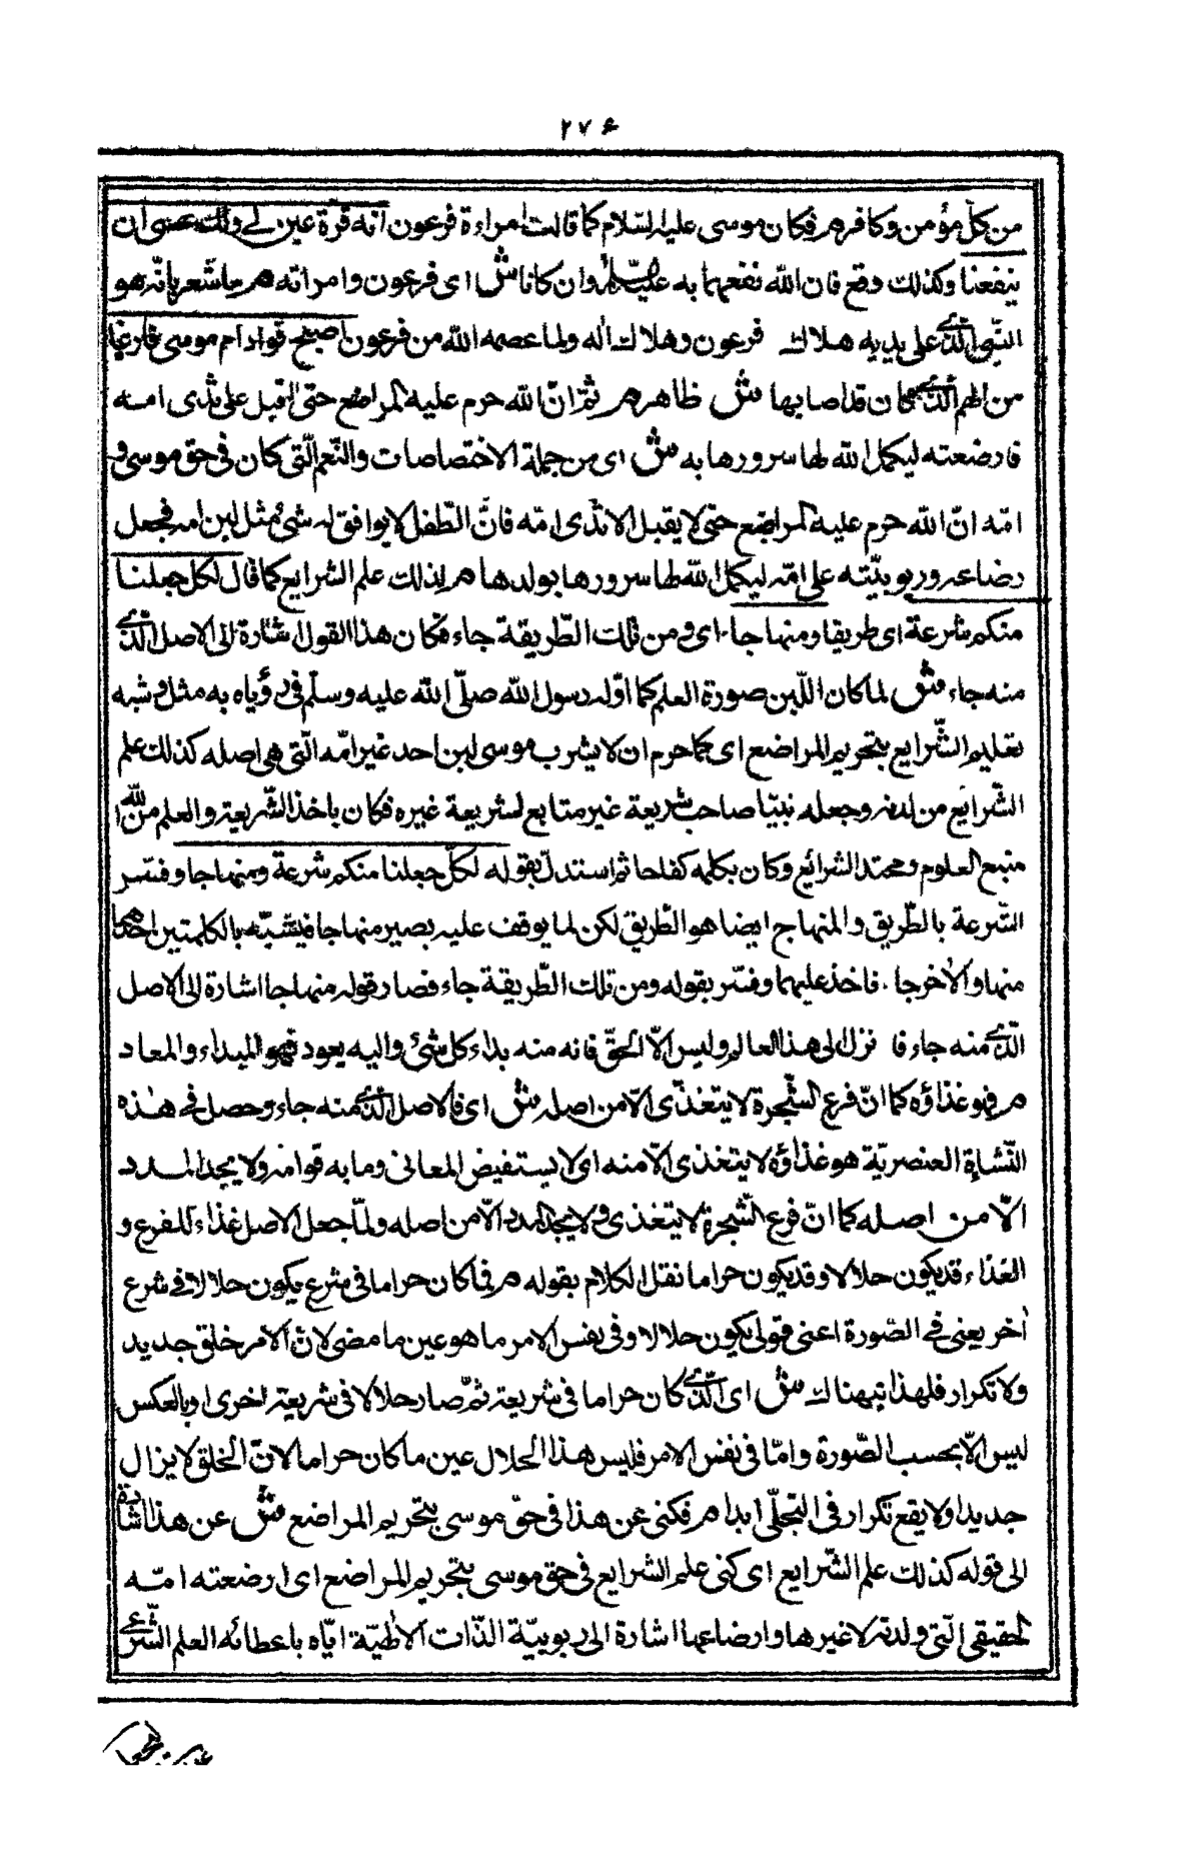 ٢٧۶
من كلّ مؤمن وكافر م فكان موسى عليه السّلام كما قالت امراءة فرعون انه قرّة عين لى ولك عسى ان
ينفعنا وكذلك وقع فان الله نفعهما به عليه السّلام وان كانا ش اى فرعون وامراته م ما شعر بانّه هو
النّبى الّذى على يديه هلاك فرعون وهلاك اله ولما عصمه الله من فرعون اصبح فواد ام موسى فارغا
من الهم الّذى كان قد اصابها ش ظاهر م ثمّ انّ الله حرم عليه المراضع حتى اقبل على ثدى امه
فارضعته ليكمل الله لها سرورها به ش اى من جملة الاختصاصات والنّعم الّتى كان فى حق موسى و
امّه انّ الله حرم عليه المراضع حتى لا يقبل الا ثدى امّه فانّ الطّفل لا يوافق له شئ مثل لبن امه فجعل
رضاعه وربوبيّته على امّه ليكمل الله لها سرورها بولدها م لذلك علم الشرايع كما قال لكل جعلنا
منكم شرعة اى طريقا ومنها جا. اى ومن تلك الطّريقة جاء فكان هذا القول اشارة الى الاصل الّذى
منه جاء ش لما كان اللّبن صورة العلم كما اوّله رسول الله صلّى الله عليه وسلّم فى رؤياه به مثل وشبه
تعليم الشّرايع بتحريم المراضع اى كما حرم ان لا يشرب موسى لبن احد غير امّه الّتى هى اصله كذلك علم
الشّرايع من لدنه وجعله نبيّا صاحب شريعة غير متابع لشريعة غيره فكان ياخذ الشّريعة والعلم من الله
منبع العلوم ومحتد الشرائع وكان يكلمه كفلحا ثم استدلّ بقوله لكلّ جعلنا منكم شرعة ومنها جا وفسّر
الشّرعة بالطّريق والمنهاج ايضا هو الطّريق لكن لما يوقف عليه يصير منها جا فيشبّه بالكلمتين احدهما
منها والاخر جا. فاخذ عليهما وفسّر بقوله ومن تلك الطّريقة جاء فصار قوله منها جا اشارة الى الاصل
الّذى منه جاء فا نزل الى هذا العالم وليس الّا الحقّ فانه منه بداء كل شئ واليه يعود فهو المبداء والمعاد
م فهو غذاؤه كما انّ فرع الشّجرة لا يتغذّى الّا من اصله ش اى فالاصل الّذى منه جاء وحصل فى هذه
النّشاءة العنصريّة هو غذاؤه لا يتغذى الّا منه اى لا يستفيض المعانى وما به قوامه ولا يجد المدد
الّا من اصله كما انّ فرع الشّجرة لا يتغذى ولا يجد المدد الّا من اصله ولمّا جعل الاصل غذاء للفرع و
الغذاء قد يكون حلالا وقد يكون حراما نقل الكلام بقوله م فما كان حراما فى شرع يكون حلالا فى شرع
اخر يعنى فى الصّورة اعنى قولى يكون حلالا وفى نفس الامر ما هو عين ما مضى لانّ الامر خلق جديد
ولا تكرار فلهذا نبهناك ش اى الّذى كان حراما فى شريعة ثمّ صار حلالا فى شريعة اخرى او بالعكس
ليس الّا بحسب الصّورة وامّا فى نفس الامر فليس هذا الحلال عين ما كان حراما لانّ الخلق لا يزال
جديدا ولا يقع تكرار فى التجلّى ابدا م فكنى عن هذا فى حقّ موسى بتحريم المراضع ش عن هذا اشارة
الى قوله كذلك علم الشّرايع اى كنى علم الشرايع فى حق موسى بتحريم المراضع اى ارضعته امّه
الحقيقى الّتى ولدته لا غيرها وارضاعها اشارة الى ربوبيّة الذّات الالهيّة ايّاه باعطائه العلم الشّرعى